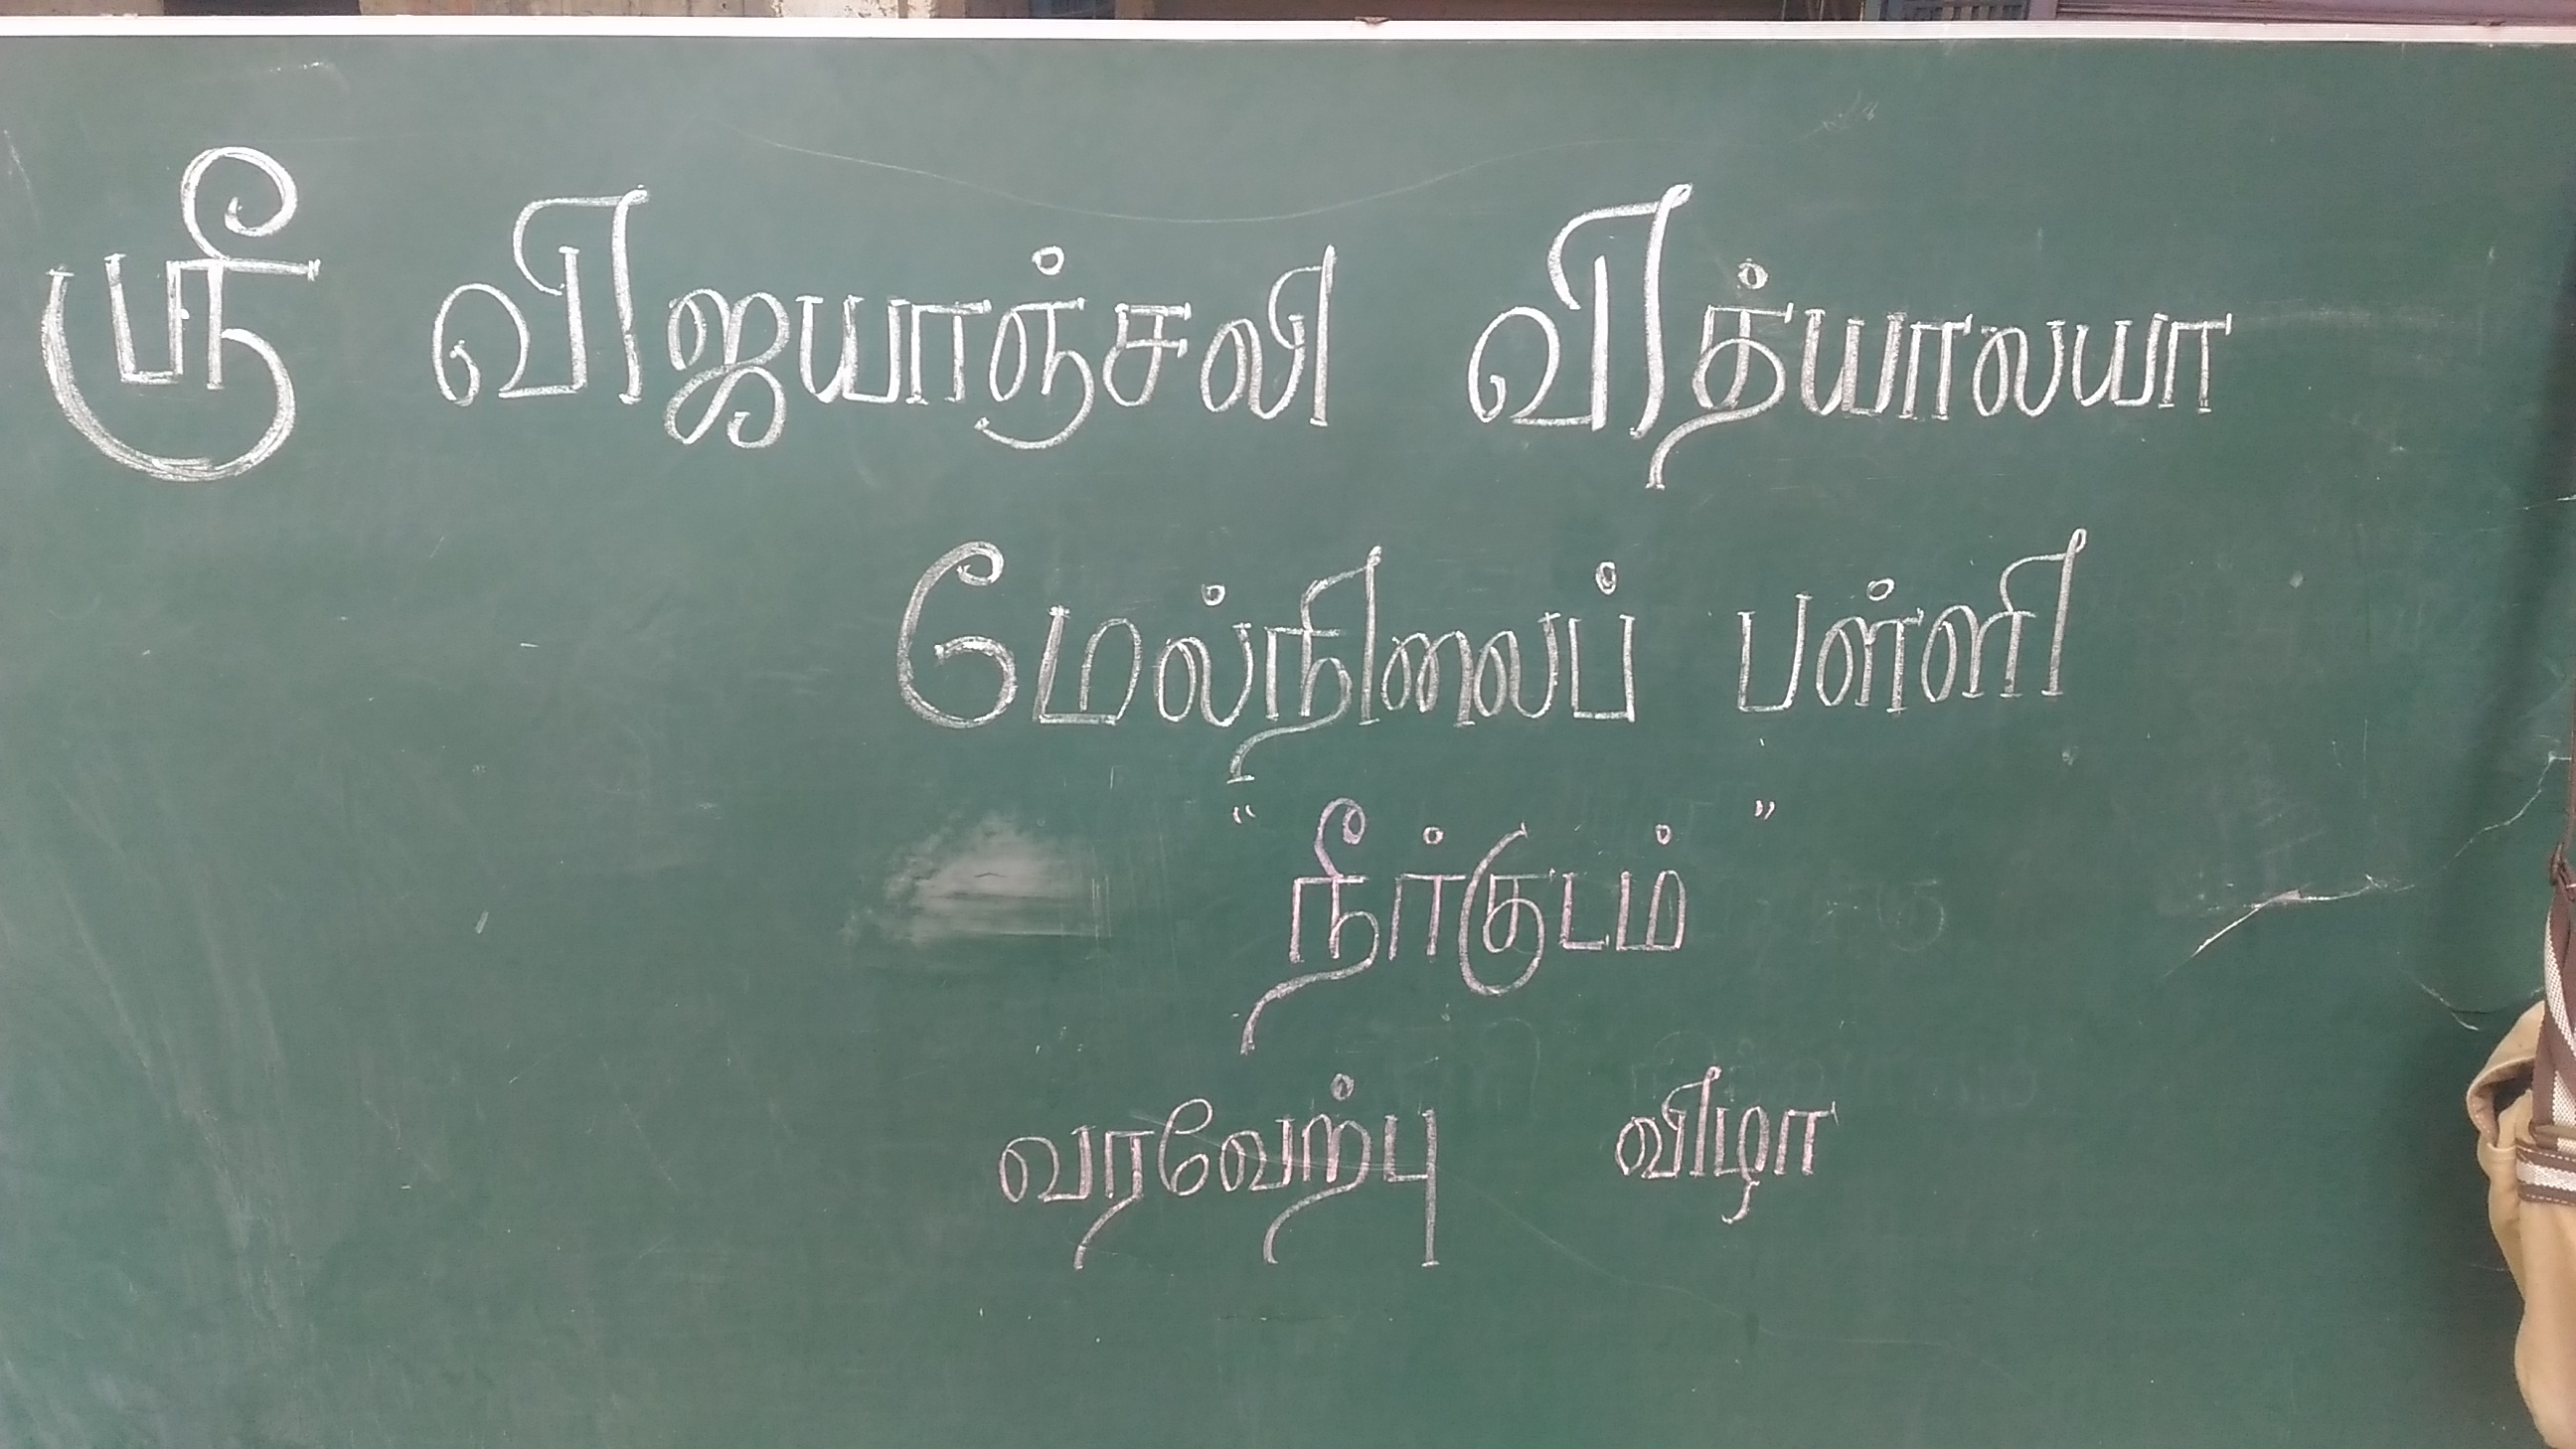 ஸ்ரீ விஜயாஞ்சலி வித்யாலயா
மேல்நிலைப் பள்ளி
“ நீர்குடம் ”
வரவேற்பு விழா